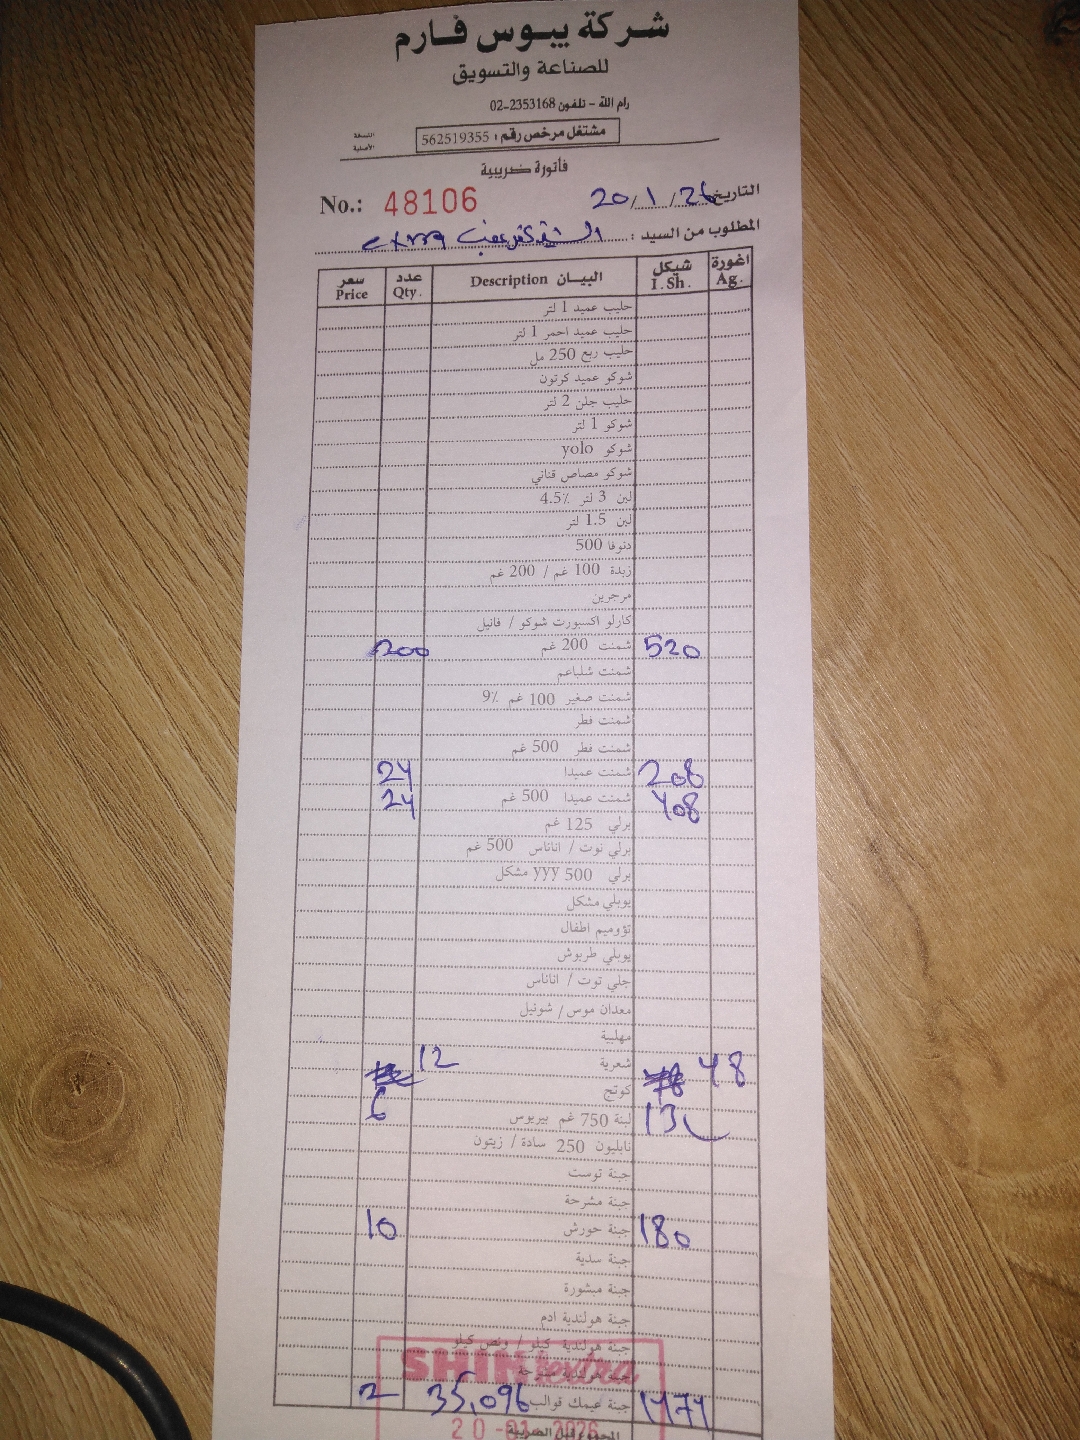 شركة يبوس فارم
للصناعة والتسويق
رام الله - تلفون 02-2353168
النسخة الأصلية
مشتغل مرخص رقم : 562519355
فاتورة ضريبية
No.: 48106
التاريخ 20/1/26
المطلوب من السيد : extra
سعر Price عدد Qty. البيـان Description شيكل I.Sh. اغورة Ag.
حليب عميد 1 لتر
حليب عميد احمر 1 لتر
حليب ربع 250 مل
شوكو عميد كرتون
حليب جلن 2 لتر
شوكو 1 لتر
شوكو yolo
شوكو مصاص قناني
لبن 3 لتر 4.5%
لبن 1.5 لتر
دنوفا 500
زبدة 100 غم / 200 غم
مرجرين
كارلو اكسبورت شوكو / فانيل
200 شمنت 200 غم 520
شمنت شلباعم
شمنت صغير 100 غم 9%
شمنت فطر
شمنت فطر 500 غم
24 شمنت عميدا 208
24 شمنت عميدا 500 غم 408
برلي 125 غم
برلي توت / اناناس 500 غم
برلي 500 yyy مشكل
يوبلي مشكل
تؤوميم اطفال
يوبلي طربوش
جلي توت / اناناس
معدان موس / شوتيل
مهلبية
12 شعرية 48
كوتج
6 لبنة 750 غم بيريوس
نابليون 250 سادة / زيتون
جبنة توست
جبنة مشرحة
10 جبنة حورش 180
جبنة سدية
جبنة مبشورة
جبنة هولندية ادم
جبنة هولندية كيلو / ونص كيلو
2 35,096 جبنة عيمك قوالب 1474
المجموع قبل الضريبة
SHINI extra
20-01-2026